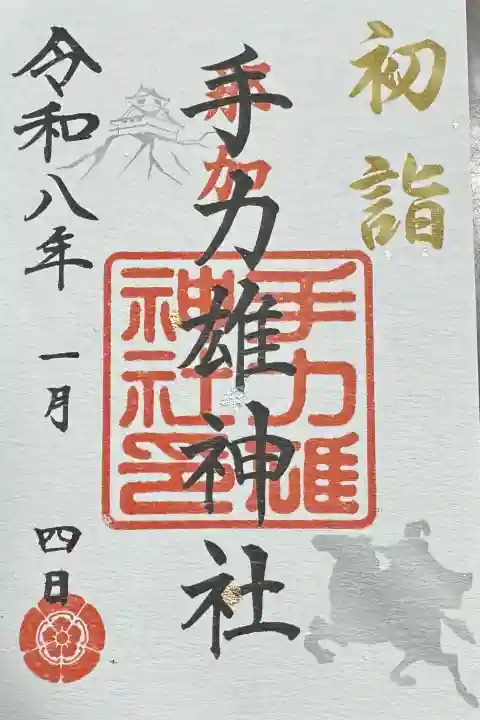 初詣
奉
加
手力雄神社
手力雄
神社印
令和八年 一月 四日